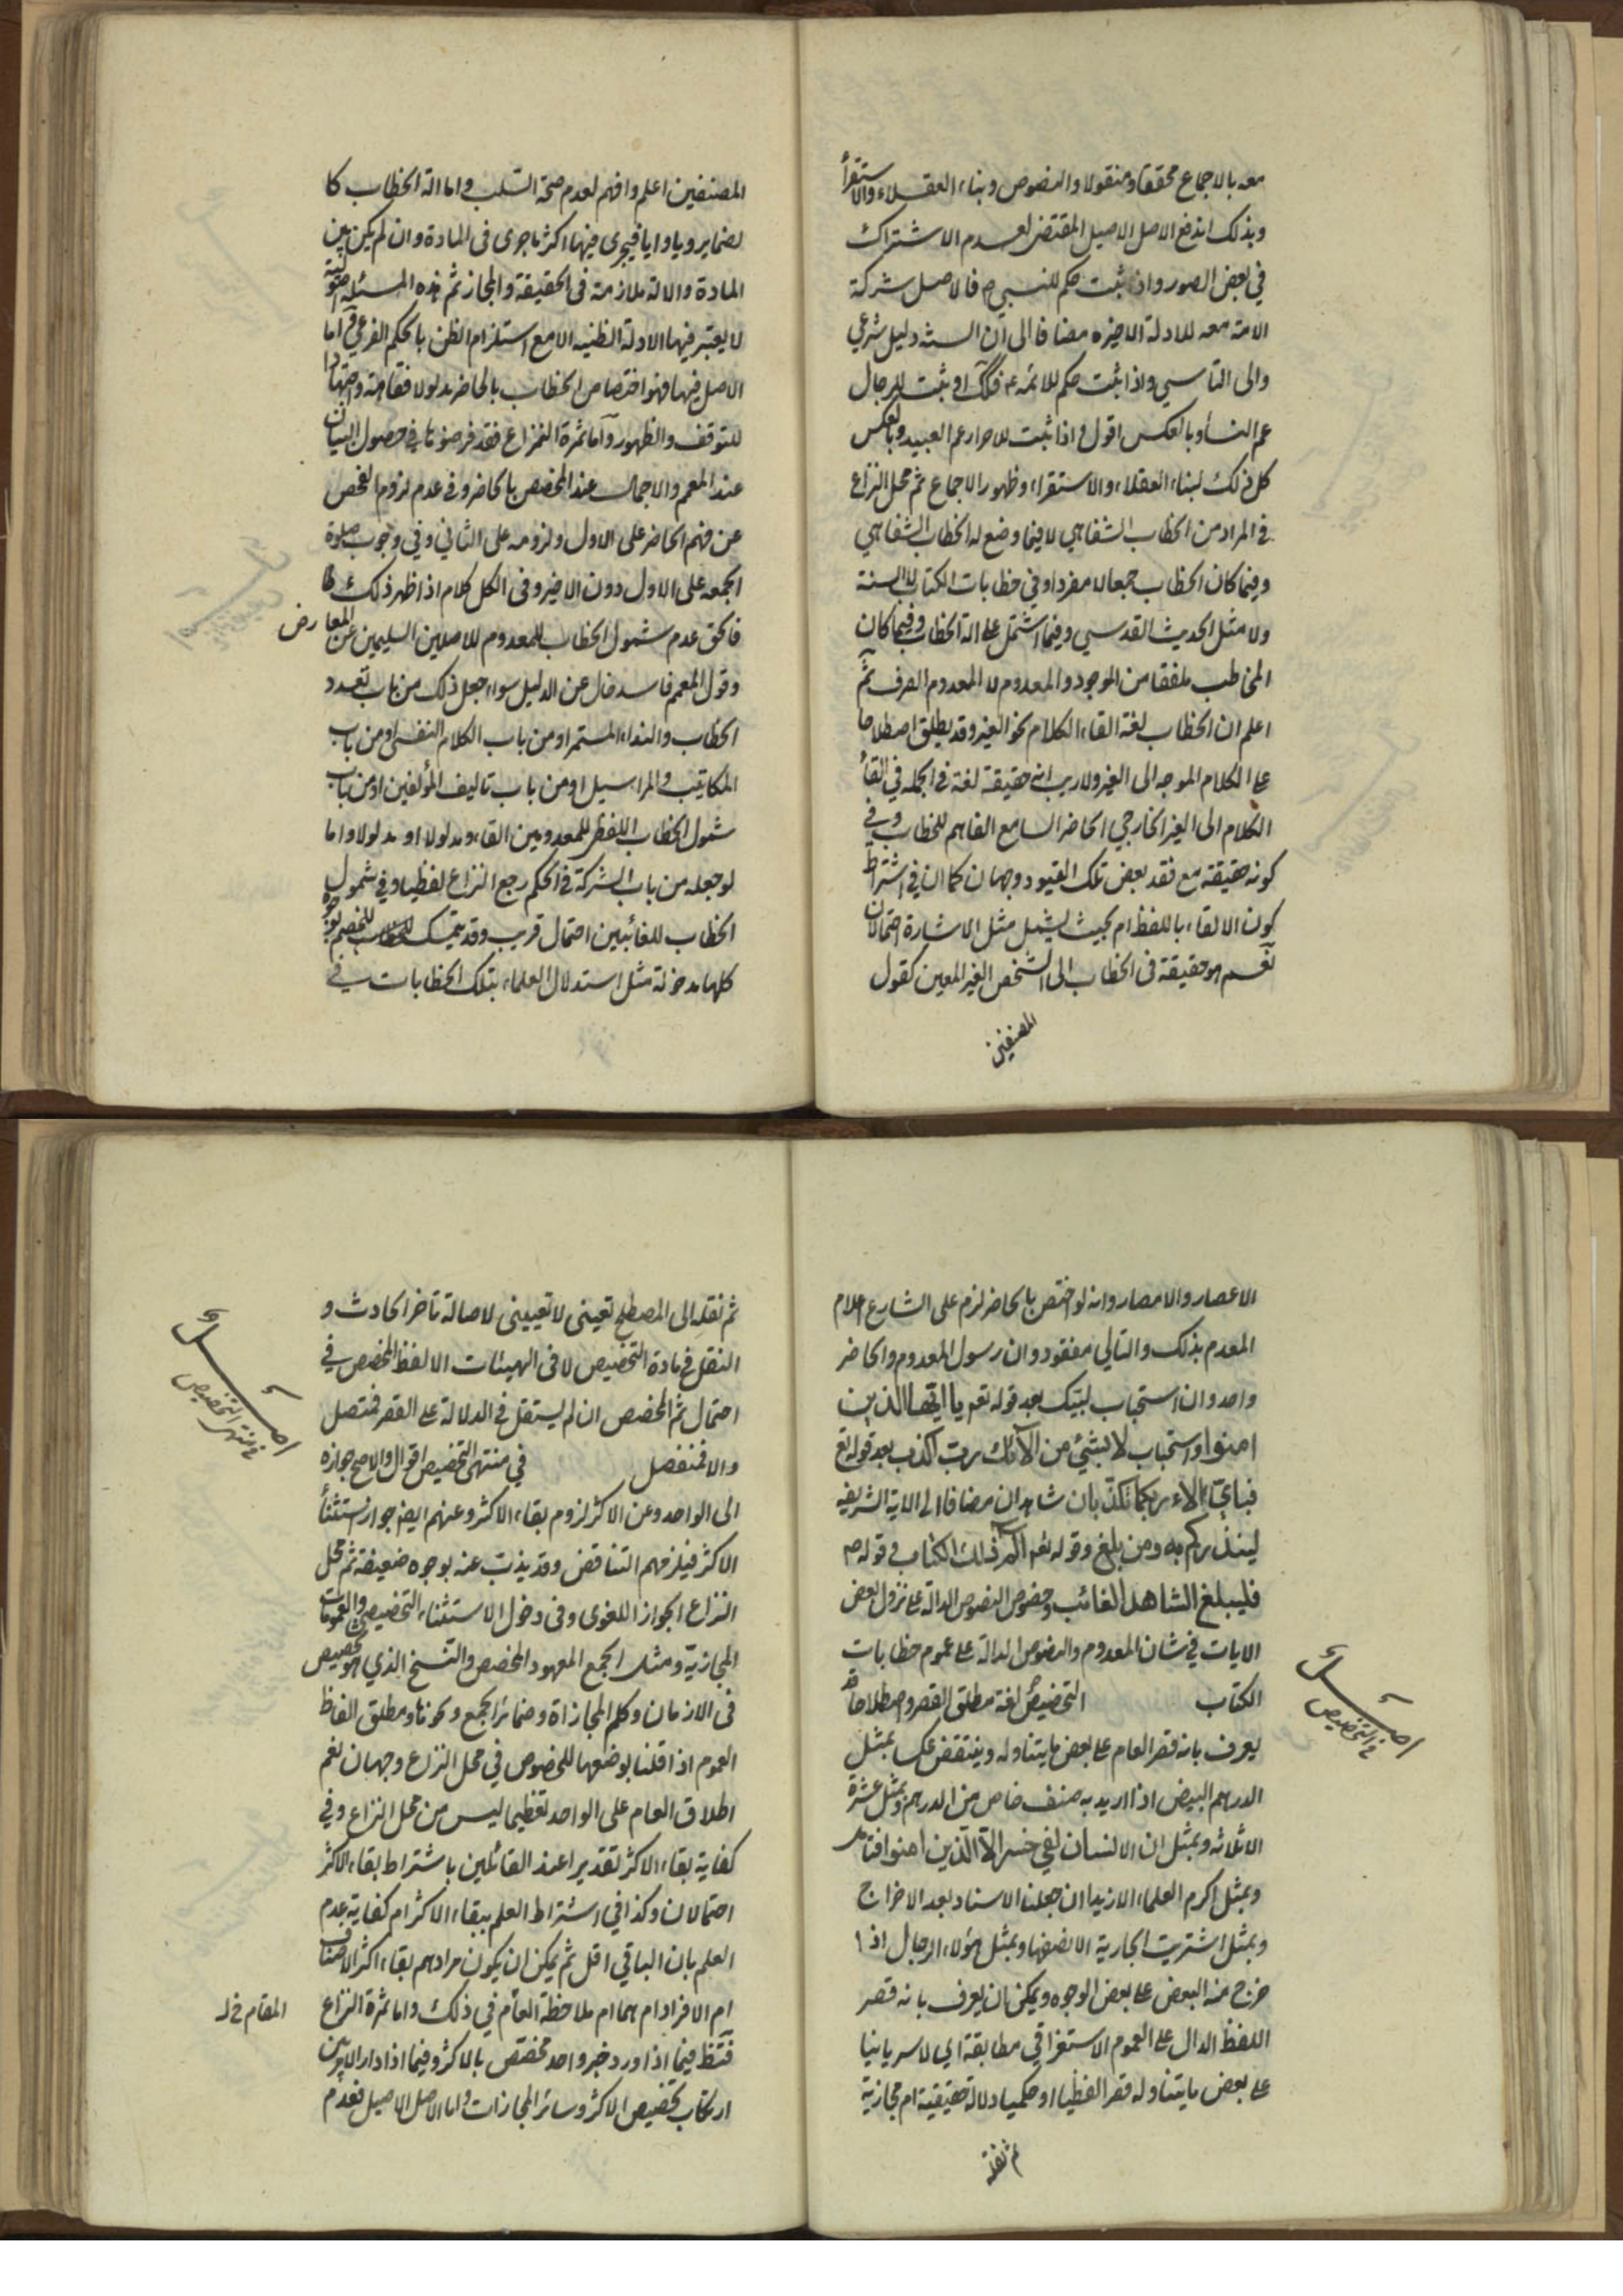 معه بالاجماع محققا ومنقولا والنصوص وبناء العقلاء والاستقرأ
وبذلك اندفع الاصل الاصيل المقتضى لعدم الاشتراك
في بعض الصور واذا ثبت حكم للنبي ص فالاصل شركة
الامة معه للادلة الاخيره مضافا الى ان السنة دليل شرعي
والى التأسي واذا ثبت حكم للائمة ع فكك او ثبت للرجال
عم النسأ وبالعكس اقول واذا ثبت للاحرار عم العبيد وبالعكس
كل ذلك لبناء العقلاء والاستقراء وظهور الاجماع ثم محل النزاع
في المراد من الخطاب الشفاهي لا فيما وضع له الخطاب الشفاهي
وفيما كان الخطاب جمعا لا مفردا وفي خطابات الكتاب لا السنة
ولا مثل الحديث القدسي وفيما اشتمل على الة الخطاب وفيما كان
المخاطب ملفقا من الموجود والمعدوم لا المعدوم الصرف ثم
اعلم ان الخطاب لغة القاء الكلام نحو الغير وقد يطلق اصطلاحا
على الكلام الموجه الى الغير ولا ريب انه حقيقة لغة في الجمله في القأ
الكلام الى الغير الخارجي الحاضر السامع الفاهم للخطاب وفي
كونه حقيقة مع فقد بعض تلك القيود وجهان كما ان في اشتراط
كون الالقاء باللفظ ام بحيث يشمل مثل الاشارة احتمالان
نعم هو حقيقة في الخطاب الى الشخص الغير المعين كقول
المصنفين
المصنفين اعلم وافهم لعدم صحة السلب واما الة الخطاب كا
لضماير ويا وايا فيجرى فيها اكثر ما جرى في المادة وان لم يكن بين
المادة والالة ملازمة في الحقيقة والمجاز ثم هذه المسئله اصولية
لا يعتبر فيها الادلة الظنيه الا مع استلزام الظن بالحكم الفرعي واما
الاصل فيها فهو اختصاص الخطاب بالحاضر مدلولا فقاهة واجتهادا
للتوقف والظهور واما ثمرة النزاع فقد فرضوها في حصول البيان
عند المعمم والاجمال عند المخصص بالحاضر وفي عدم لزوم الفحص
عن فهم الحاضر على الاول ولزومه على الثاني وفي وجوب صلوة
الجمعه على الاول دون الاخير وفي الكل كلام اذا ظهر ذلك
فالحق عدم شمول الخطاب للمعدوم للاصلين السليمين عن المعارض
وقول المعمم فاسد خال عن الدليل سواء جعل ذلك من باب تعدد
الخطاب والنداء المستمر او من باب الكلام النفسي او من باب
المكاتيب والمراسيل او من باب تاليف المؤلفين او من باب
شمول الخطاب اللفظي للمعدومين القاء ومدلولا او مدلولا واما
لو جعله من باب الشركة في الحكم رجع النزاع لفظيا وفي شمول
الخطاب للغائبين احتمال قريب وقد يتمسك للخصم بوجوه
كلها مدخولة مثل استدلال العلماء بتلك الخطابات في
الاعصار والامصار وانه لو اختص بالحاضر لزم على الشارع اعلام
المعدوم بذلك والتالي مفقود وان رسول المعدوم والحاضر
واحد وان استحباب لبيك بعد قوله تعم يا ايها الذين
امنوا واستحباب لا بشئ من الآئك رب اكذب بعد قوله تع
فباي الاء ربكما تكذبان شاهدان مضافا الى الاية الشريفه
لينذركم به ومن بلغ وقوله تعم الم ذلك الكتاب وقوله ص
فليبلغ الشاهد الغائب وخصوص النصوص الدالة على نزول بعض
الايات في شان المعدوم والنصوص الدالة على عموم خطابات
الكتاب التخصيص لغة مطلق القصر واصطلاحا قد
اصل في التخصيص
يعرف بانه قصر العام على بعض ما يتناوله وينتقض عكسا بمثل
الدرهم البيض اذا اريد به صنف خاص من الدرهم وبمثل عشرة
الا ثلاثه وبمثل ان الانسان لفي خسر الا الذين امنوا فتامل
وبمثل اكرم العلماء الا زيدا ان جعلنا الاسناد بعد الاخراج
وبمثل اشتريت الجارية الا نصفها وبمثل هؤلاء الرجال اذا
خرج منه البعض على بعض الوجوه ويمكن ان يعرف بانه قصر
اللفظ الدال على العموم الاستغراقي مطابقة اي لا سريانيا
على بعض ما يتناوله قصرا لفظيا او حكميا دلالة حقيقية ام مجازية
ثم نقله
ثم نقله الى المصطلح تعيني لا تعييني لاصالة تاخر الحادث و
النقل في مادة التخصيص لا في الهيئات الا لفظ المخصص في
احتمال ثم المخصص ان لم يستقل في الدلالة على القصر فمتصل
والا فمنفصل في منتهى التخصيص اقوال والاصح جوازه
اصل في منتهى التخصيص
الى الواحد وعن الاكثر لزوم بقاء الاكثر وعنهم ايضا جواز استثنأ
الاكثر فيلزمهم التناقض وقد يذب عنه بوجوه ضعيفة ثم محل
النزاع الجواز اللغوى وفي دخول الاستثناء والتخصيص والعمومات
المجازية ومثل الجمع المعهود المخصص والنسخ الذي هو تخصيص
في الازمان وكلم المجازاة وضمائر الجمع ونحوها ومطلق الفاظ
العموم اذا قلنا بوضعها للخصوص في محل النزاع وجهان نعم
اطلاق العام على الواحد تعظيما ليس من محل النزاع وفي
كفاية بقاء الاكثر تقديرا عند القائلين باشتراط بقاء الاكثر
احتمالان وكذا في اشتراط العلم ببقاء الاكثر ام كفاية عدم
العلم بان الباقي اقل ثم يمكن ان يكون مرادهم بقاء اكثر الاصناف
ام الافراد ام هما ام ملاحظة العام في ذلك واما ثمرة النزاع
المقام خ ل
فتظهر فيما اذا ورد خبر واحد مخصص بالاكثر وفيما اذا دار الامر بين
ارتكاب تخصيص الاكثر وسائر المجازات واما الاصل الاصيل فعدم